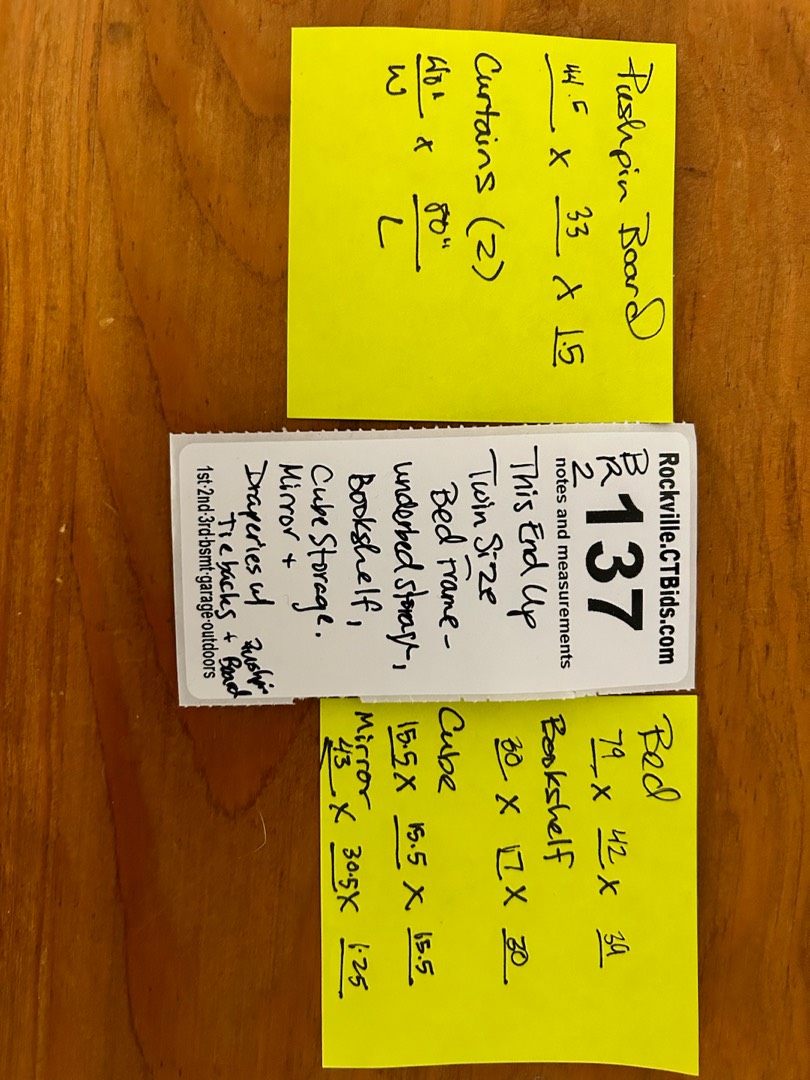 Pushpin Board
44.5 x 33 x 1.5
Curtains (2)
48" x 80"
W L
Rockville.CTBids.com
BR 2
137
notes and measurements
This End Up
Twin Size
Bed Frame -
underbed storage,
Bookshelf,
Cube Storage,
Mirror +
Draperies w/ Pushpin
Tie backs + Board
1st·2nd·3rd·bsmt·garage·outdoors
Bed
79 x 42 x 39
Bookshelf
30 x 17 x 30
Cube
15.5 x 15.5 x 15.5
Mirror
43 x 30.5 x 1.25